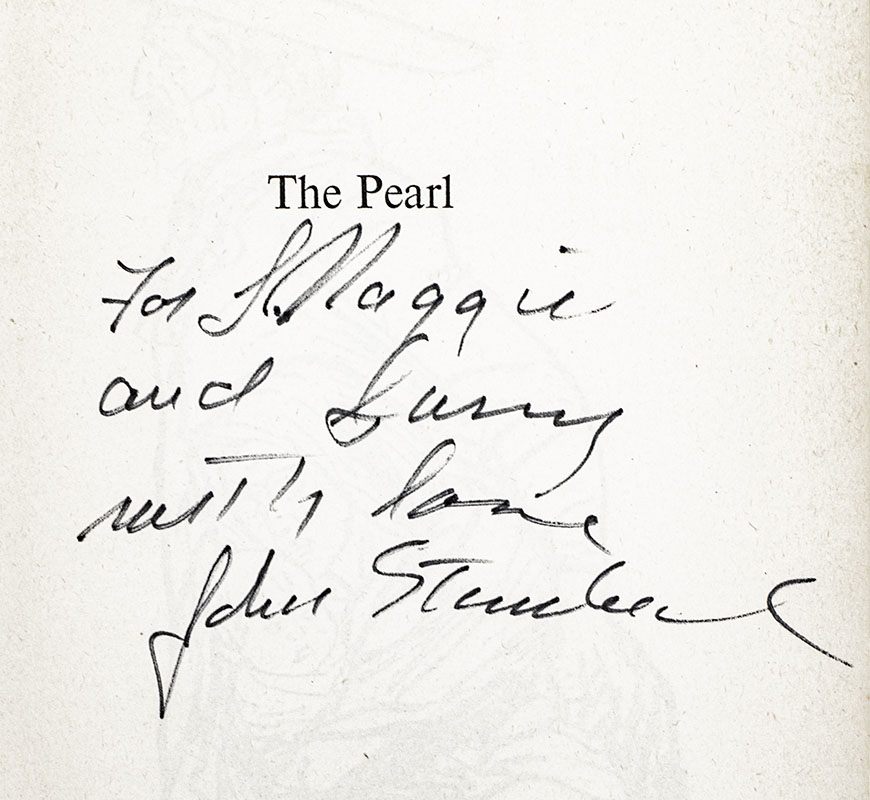 The Pearl
For Maggie
and
with love
John Steinbeck